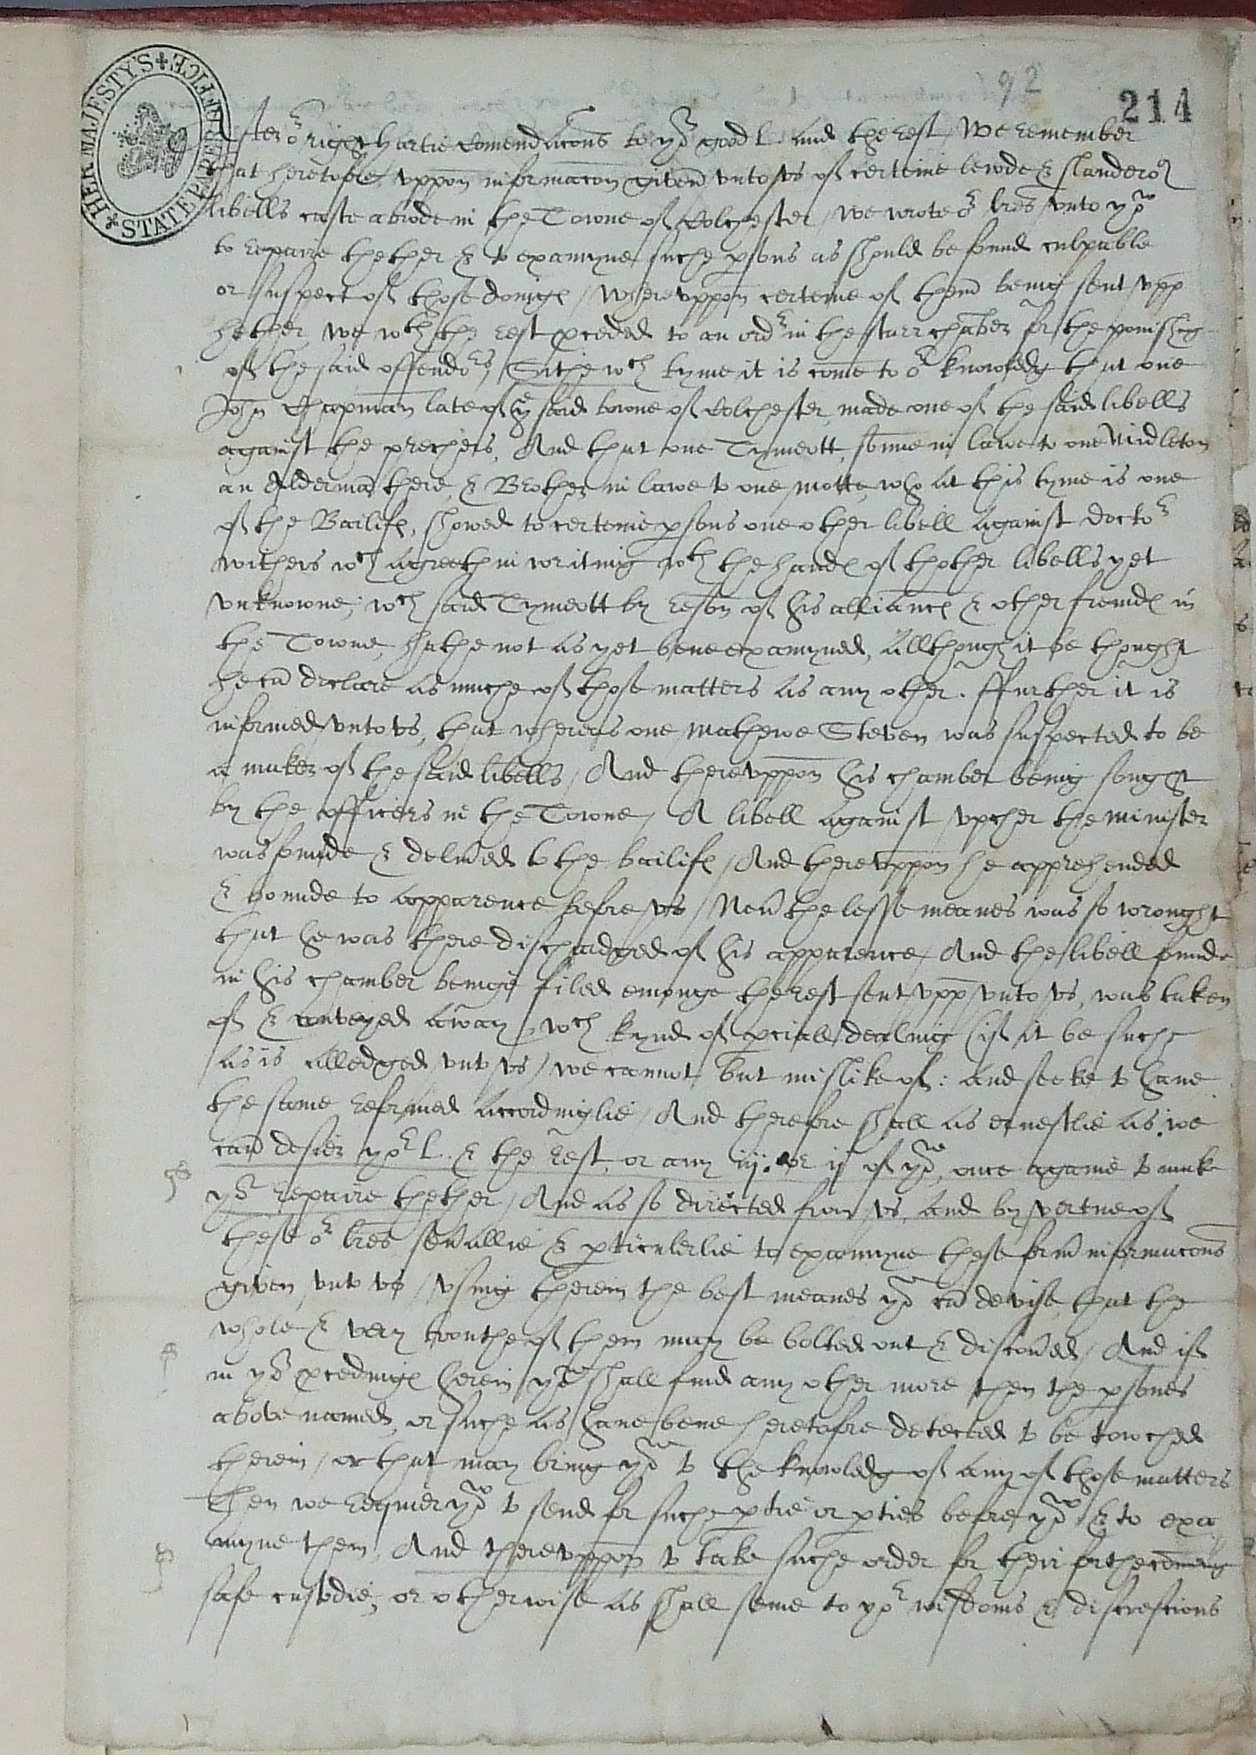 92
214
HER MAJESTY'S STATE PAPER OFFICE
After or right hartie comendacons to yor good L. and the rest, We remember
that heretofore, vppon informacon given vnto vs of certeine lewde & slanderos
libells caste abrode in the Towne of Colchester, we wrote or lres vnto you
to repaire thether & to examyne suche psons as should be found culpable
or suspect of those doinges, Wherevppon certeine of them being sent vpp
hether, we wth the rest pceded to an ordr in the starr chamber for the ponishig
of the said offendors, Sithe wch tyme it is come to or knowledg that one
John Chapman late of ye said towne of Colchester, made one of the said libells
against the prechers, And that one Tymeott, sonne in lawe to one Midleton
an Alderman there, & Brother in lawe to one Motte, who at this tyme is one
of the Bailifes, showed to certeine psons one other libell against doctor
withers wch agreeth in writing wth the handes of thother libells yet
vnknowne; wch said Tymeott by reason of his alliance & other freindes in
the Towne, hathe not as yet bene examyned, Allthough it be thought
he can declare as muche of those matters as any other. ffurther it is
informed vnto vs, that wheras one Mathewe Steven was suspected to be
a maker of the said libells, And therevppon his chamber being sought
by the officers in the Towne, A libell against vpcher the minister
was founde & delived to the bailifes, And therevppon he apprehended
& bounde to apparence before vs, Nevthelesse meanes was so wrought
that he was there dischardged of his apparence, And the libell founde
in his chamber beinge filed emonge the rest sent vpp vnto vs, was taken
of & conveyed away, wch kynd of pciall dealing (if it be suche
as is alledged vnto vs) we cannot but mislike of: and seeke to have
the same reformed accordinglie, And therefore shall as ernestlie as we
can desier yor L. & the rest, or any iij. or ij of you, once againe to make
yor repaire thether, And as so directed from vs, and by vertue of
these or lres sevallie & pticulerlie to examyne these form informacons
given vnto vs, vsing therein the best meanes you can devise, that the
whole & very trouthe of them may be bolted out & discoved, And if
in yor pcedinges herein you shall find any other more then the psones
above named, or suche as have bene heretofore detected to be towched
therein, or that may bring you to the knowledg of any of those matters
Then we requier you to send for suche ptie or pties before you & to exa
myne them, And therevppon to take suche order for their forthcoming
safe custodie, or otherwise as shall seme to yor wisdoms & discrescions